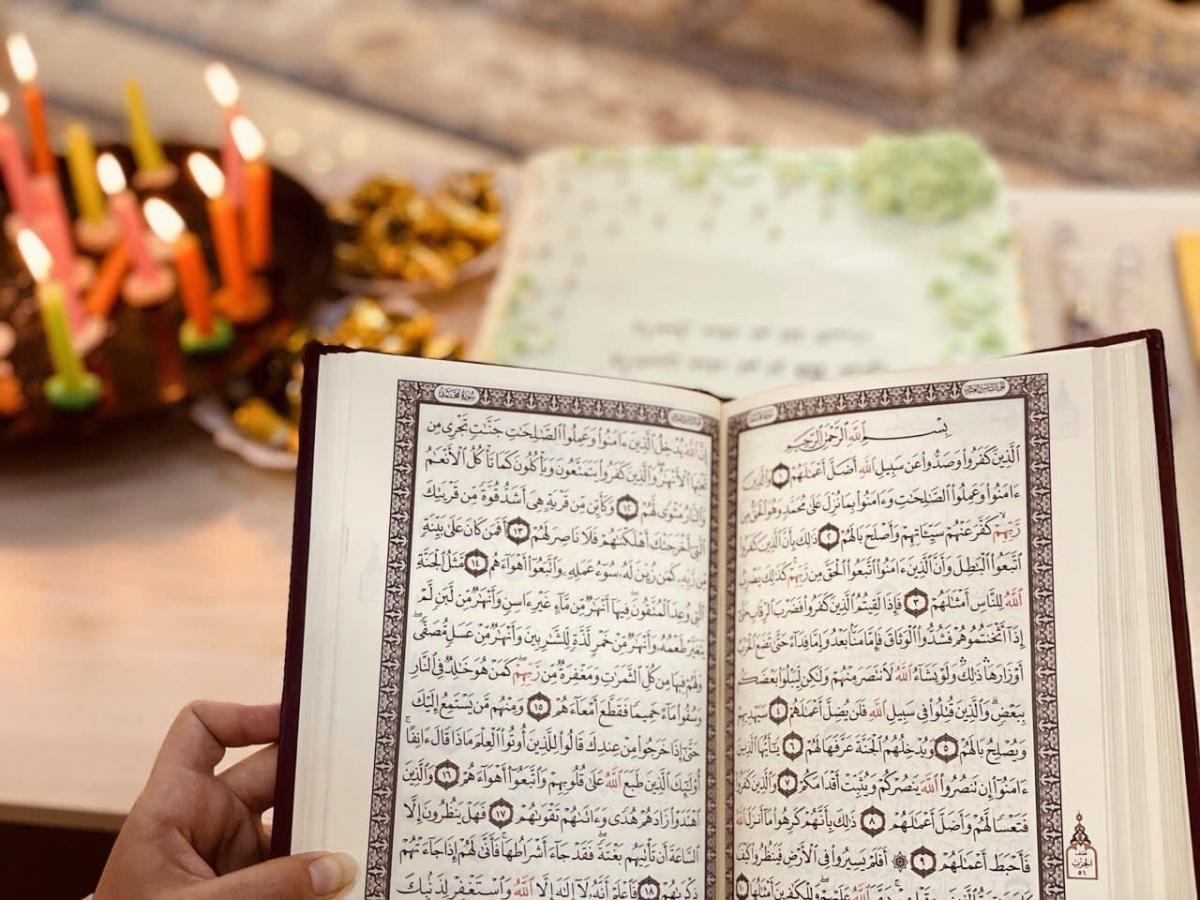 بِسْمِ ٱللَّهِ ٱلرَّحْمَٰنِ ٱلرَّحِيمِ
ٱلَّذِينَ كَفَرُوا۟ وَصَدُّوا۟ عَن سَبِيلِ ٱللَّهِ أَضَلَّ أَعْمَٰلَهُمْ ١ وَٱلَّذِينَ
ءَامَنُوا۟ وَعَمِلُوا۟ ٱلصَّٰلِحَٰتِ وَءَامَنُوا۟ بِمَا نُزِّلَ عَلَىٰ مُحَمَّدٍ وَهُوَ ٱلْحَقُّ مِن
رَّبِّهِمْ كَفَّرَ عَنْهُمْ سَيِّـَٔاتِهِمْ وَأَصْلَحَ بَالَهُمْ ٢ ذَٰلِكَ بِأَنَّ ٱلَّذِينَ كَفَرُوا۟
ٱتَّبَعُوا۟ ٱلْبَٰطِلَ وَأَنَّ ٱلَّذِينَ ءَامَنُوا۟ ٱتَّبَعُوا۟ ٱلْحَقَّ مِن رَّبِّهِمْ كَذَٰلِكَ يَضْرِبُ
ٱللَّهُ لِلنَّاسِ أَمْثَٰلَهُمْ ٣ فَإِذَا لَقِيتُمُ ٱلَّذِينَ كَفَرُوا۟ فَضَرْبَ ٱلرِّقَابِ حَتَّىٰٓ
إِذَآ أَثْخَنتُمُوهُمْ فَشُدُّوا۟ ٱلْوَثَاقَ فَإِمَّا مَنًّۢا بَعْدُ وَإِمَّا فِدَآءً حَتَّىٰ تَضَعَ ٱلْحَرْبُ
أَوْزَارَهَا ذَٰلِكَ وَلَوْ يَشَآءُ ٱللَّهُ لَٱنتَصَرَ مِنْهُمْ وَلَٰكِن لِّيَبْلُوَا۟ بَعْضَكُم
بِبَعْضٍ وَٱلَّذِينَ قُتِلُوا۟ فِى سَبِيلِ ٱللَّهِ فَلَن يُضِلَّ أَعْمَٰلَهُمْ ٤ سَيَهْدِيهِمْ
وَيُصْلِحُ بَالَهُمْ ٥ وَيُدْخِلُهُمُ ٱلْجَنَّةَ عَرَّفَهَا لَهُمْ ٦ يَٰٓأَيُّهَا ٱلَّذِينَ
ءَامَنُوٓا۟ إِن تَنصُرُوا۟ ٱللَّهَ يَنصُرْكُمْ وَيُثَبِّتْ أَقْدَامَكُمْ ٧ وَٱلَّذِينَ كَفَرُوا۟
فَتَعْسًا لَّهُمْ وَأَضَلَّ أَعْمَٰلَهُمْ ٨ ذَٰلِكَ بِأَنَّهُمْ كَرِهُوا۟ مَآ أَنزَلَ ٱللَّهُ
فَأَحْبَطَ أَعْمَٰلَهُمْ ٩ ۞ أَفَلَمْ يَسِيرُوا۟ فِى ٱلْأَرْضِ فَيَنظُرُوا۟ كَيْفَ
ٱللَّهُ عَلَيْهِمْ وَلِلْكَٰفِرِينَ أَمْثَٰلُهَا ١٠
الحزب
٥١
سورة محمد
إِنَّ ٱللَّهَ يُدْخِلُ ٱلَّذِينَ ءَامَنُوا۟ وَعَمِلُوا۟ ٱلصَّٰلِحَٰتِ جَنَّٰتٍ تَجْرِى مِن
تَحْتِهَا ٱلْأَنْهَٰرُ وَٱلَّذِينَ كَفَرُوا۟ يَتَمَتَّعُونَ وَيَأْكُلُونَ كَمَا تَأْكُلُ ٱلْأَنْعَٰمُ
وَٱلنَّارُ مَثْوًى لَّهُمْ ١٢ وَكَأَيِّن مِّن قَرْيَةٍ هِىَ أَشَدُّ قُوَّةً مِّن قَرْيَتِكَ
ٱلَّتِىٓ أَخْرَجَتْكَ أَهْلَكْنَٰهُمْ فَلَا نَاصِرَ لَهُمْ ١٣ أَفَمَن كَانَ عَلَىٰ بَيِّنَةٍ
مِّن رَّبِّهِۦ كَمَن زُيِّنَ لَهُۥ سُوٓءُ عَمَلِهِۦ وَٱتَّبَعُوٓا۟ أَهْوَآءَهُم ١٤ مَّثَلُ ٱلْجَنَّةِ
ٱلَّتِى وُعِدَ ٱلْمُتَّقُونَ فِيهَآ أَنْهَٰرٌ مِّن مَّآءٍ غَيْرِ ءَاسِنٍ وَأَنْهَٰرٌ مِّن لَّبَنٍ لَّمْ
يَتَغَيَّرْ طَعْمُهُۥ وَأَنْهَٰرٌ مِّنْ خَمْرٍ لَّذَّةٍ لِّلشَّٰرِبِينَ وَأَنْهَٰرٌ مِّنْ عَسَلٍ مُّصَفًّى
وَلَهُمْ فِيهَا مِن كُلِّ ٱلثَّمَرَٰتِ وَمَغْفِرَةٌ مِّن رَّبِّهِمْ كَمَنْ هُوَ خَٰلِدٌ فِى ٱلنَّارِ
وَسُقُوا۟ مَآءً حَمِيمًا فَقَطَّعَ أَمْعَآءَهُمْ ١٥ وَمِنْهُم مَّن يَسْتَمِعُ إِلَيْكَ
حَتَّىٰٓ إِذَا خَرَجُوا۟ مِنْ عِندِكَ قَالُوا۟ لِلَّذِينَ أُوتُوا۟ ٱلْعِلْمَ مَاذَا قَالَ ءَانِفًا
أُو۟لَٰٓئِكَ ٱلَّذِينَ طَبَعَ ٱللَّهُ عَلَىٰ قُلُوبِهِمْ وَٱتَّبَعُوٓا۟ أَهْوَآءَهُمْ ١٦ وَٱلَّذِينَ
ٱهْتَدَوْا۟ زَادَهُمْ هُدًى وَءَاتَىٰهُمْ تَقْوَىٰهُمْ ١٧ فَهَلْ يَنظُرُونَ إِلَّا
ٱلسَّاعَةَ أَن تَأْتِيَهُم بَغْتَةً فَقَدْ جَآءَ أَشْرَاطُهَا فَأَنَّىٰ لَهُمْ إِذَا جَآءَتْهُمْ
ذِكْرَىٰهُمْ ١٨ فَٱعْلَمْ أَنَّهُۥ لَآ إِلَٰهَ إِلَّا ٱللَّهُ وَٱسْتَغْفِرْ لِذَنۢبِكَ